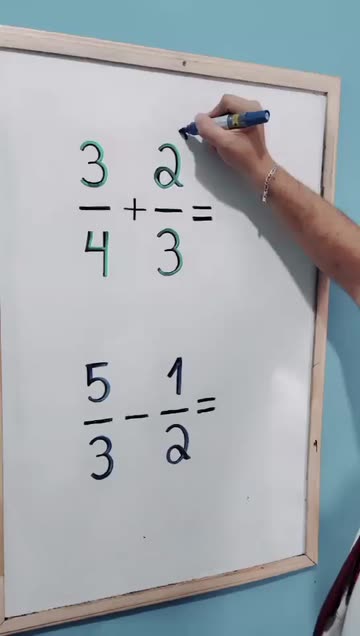 3/4 + 2/3 =
5/3 - 1/2 =